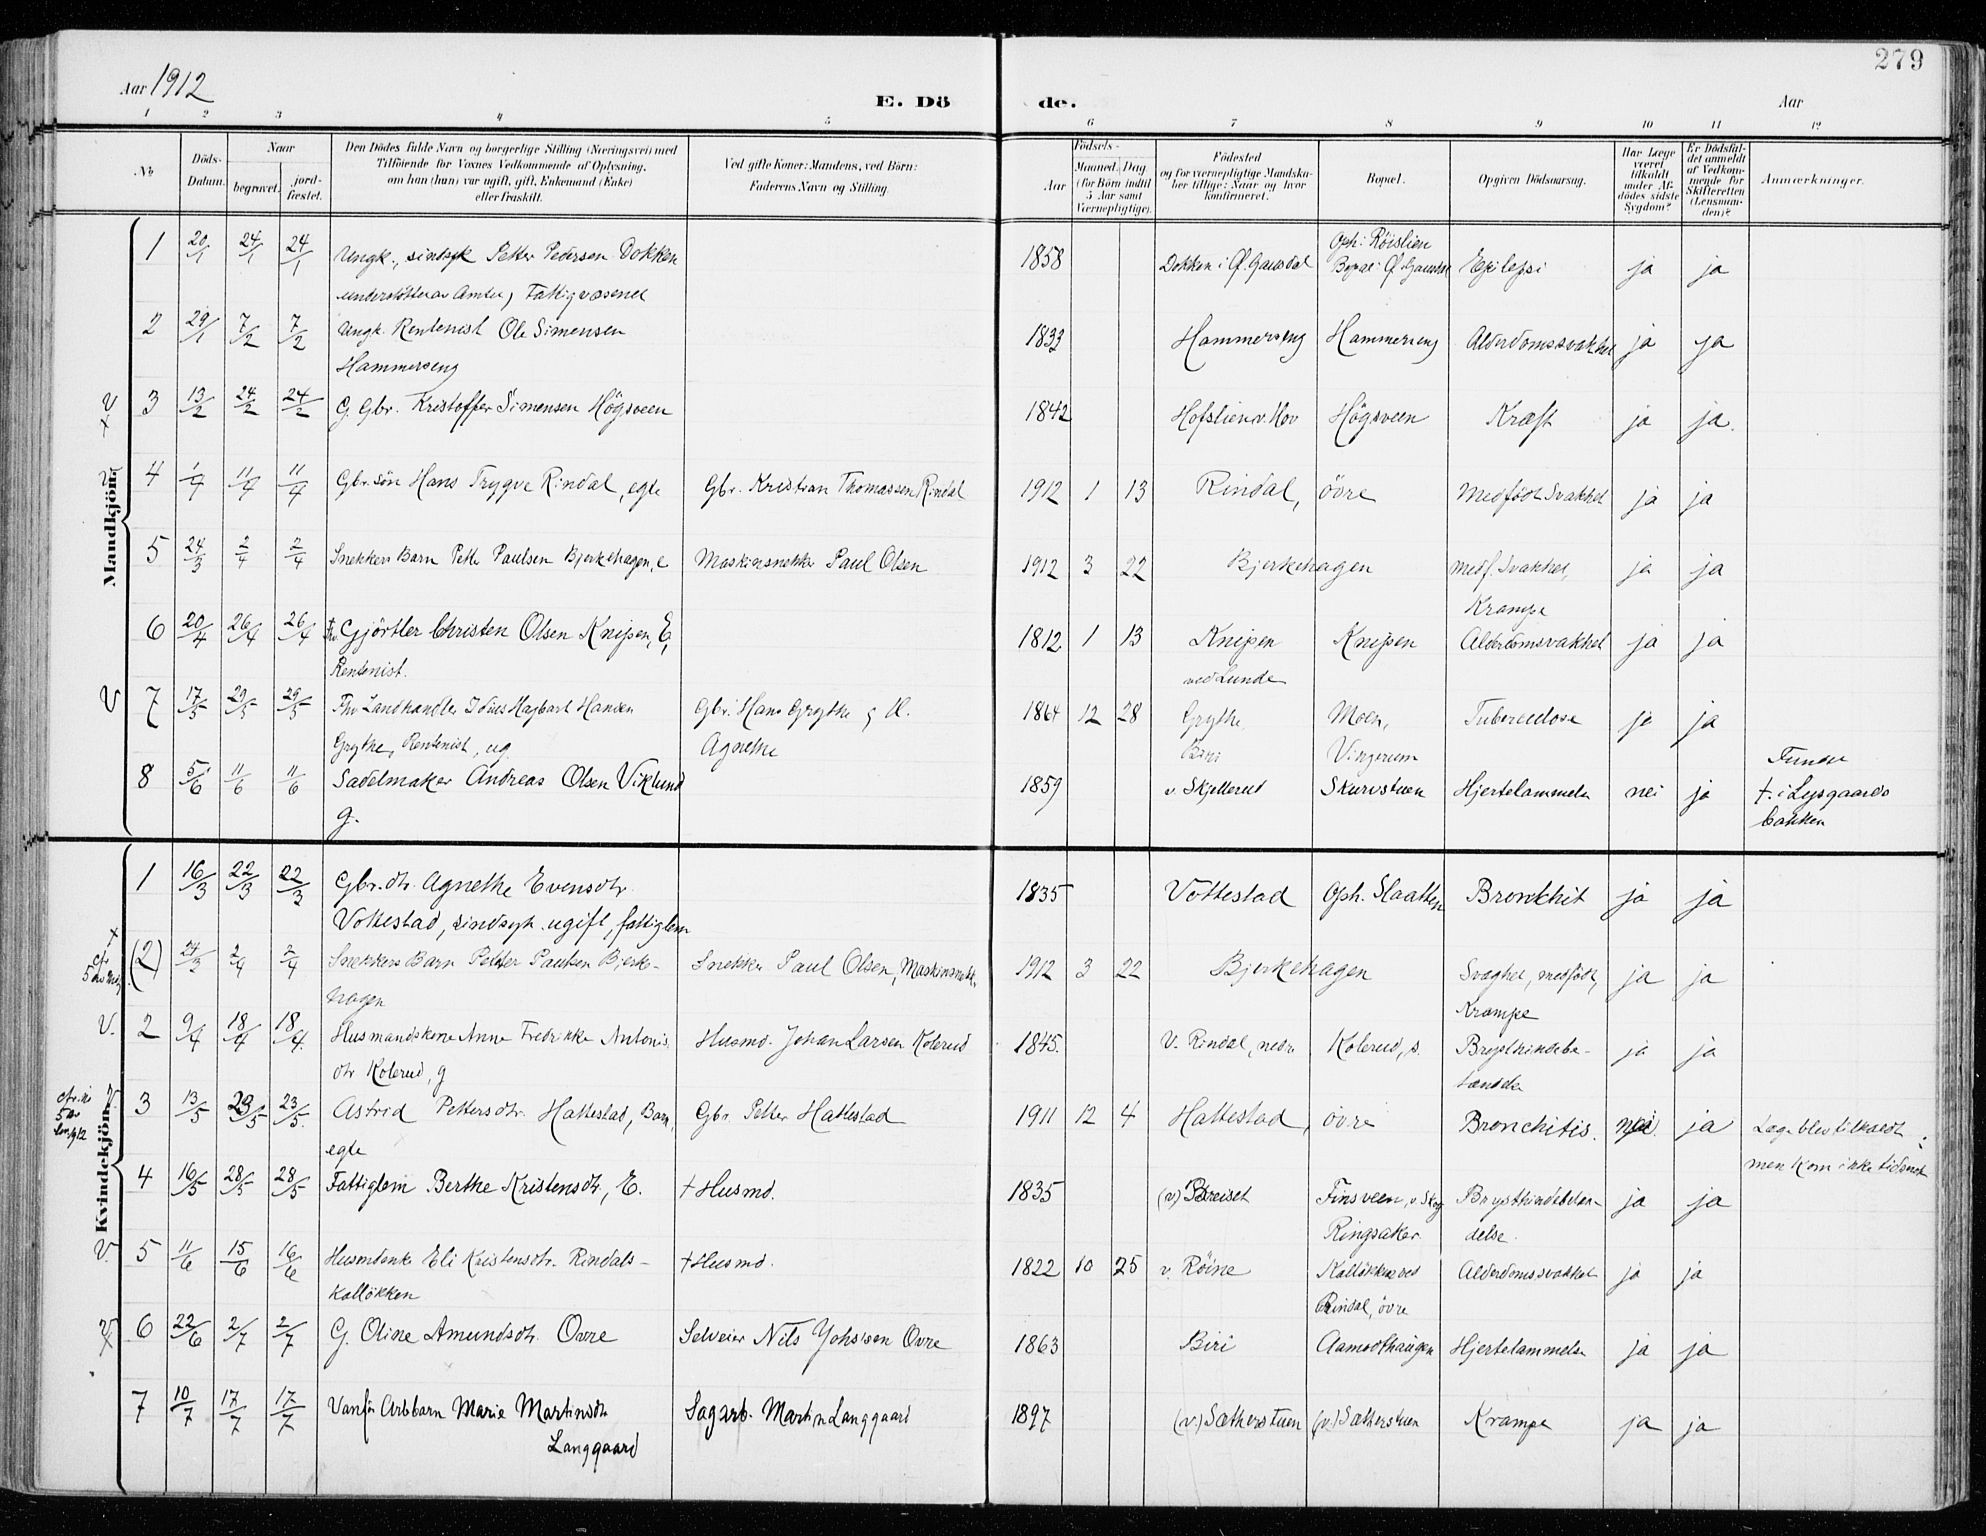 279
Aar 1912
E. Dö de.
Aar
1 2 3 4 5 6 7 8 9 10 11 12
No
Döds-Datum.
Naar
begravet.
jord-fæstet.
Den Dödes fulde Navn og borgerlige Stilling (Næringsvei) med
Tilföiende for Voxnes Vedkommende af Oplysning,
om han (hun) var ugift, gift, Enkemand (Enke)
eller fraskilt.
Ved gifte Koner: Mandens, ved Börn:
Faderens Navn og Stilling.
Födsels-
Aar
Maaned. Dag.
(for Börn indtil
5 Aar samt
Værnepligtige).
Födested
og for værnepligtige Mandska-
ber tillige: Naar og hvor
konfirmeret.
Bopæl.
Opgiven Dödsaarsag.
Har Læge
været
tilkaldt
under Af-
dödes sidste
Sygdom?
Er Dödsfal-
det anmeldt
af Vedkom-
mende for
Skifteretten
(Lensman-
den)?
Anmærkninger.
Mandkjön.
1 20/1 24/1 24/1 Ungk., sindsyk Petter Pedersen Dokken 1858 Dokken i Ø. Gausdal Oph: Röislien Epilepsi ja ja
Fattigvæsenet Bopæl: Ø. Gausdal
2 29/1 7/2 7/2 Ungk. Rentenist Ole Simensen 1833 Hammerseng Hammerseng Alderdomssvakhet ja ja
Hammerseng
V + 3 13/2 24/2 24/2 G. Gbr. Kristoffer Simensen Högsveen 1842 Hofslien v. Hov Högsveen Kræft ja ja.
V 4 1/4 11/4 11/4 Gbr. sön Hans Trygve Rindal, egte Gbr. Kristian Thomassen Rindal 1912 1 13 Rindal, övre Medfödt Svakhet ja ja
5 24/3 2/4 2/4 Snekkers Barn Petter Paulsen Bjerkehagen, e Maskinsnekker Paul Olsen 1912 3 22 Bjerkehagen Medf. Svakhet, ja ja
Krampe
6 20/4 26/4 26/4 Fhv. Gjörtler Christen Olsen Knipen, E, 1812 1 13 Knipen Knipen Alderdomsvakhet ja ja
Rentenist. ved Lunde
V 7 17/5 29/5 29/5 Fhv Landhandler Hagbart Hansen Gbr. Hans Grythe & H. 1864 12 28 Grythe, Moen, Tuberculose ja ja
Grythe, Rentenist, ug. Agnethe Biri Vingrom
8 5/6 11/6 11/6 Sadelmaker Andreas Olsen Viklund 1859 v Skjellerud Skurvstuen Hjertelammelse nei ja Funden
g. †. i Lysgaards
bakken
Kvindekjön.
1 16/3 22/3 22/3 Gbr. dtr. Agnethe Evensdtr. 1835 Vottestad Oph. Slaatten Bronchit ja ja
Vottestad, sindsyk ugift, fattiglem
+ cf. (2) 24/3 2/4 2/4 Snekkers Barn Petter Paulsen Bjerke- Snekker Paul Olsen, Maskinsnekk. 1912 3 22 Bjerkehagen Svaghet, medfödt, ja ja
hagen Krampe
V. 2 9/4 18/4 18/4 Husmandskone Anne Fredrikke Antonis. Husmd. Johan Larsen Kolerud 1845. V. Rindal, nedre Kolerud, s. Brysthindebe- ja ja
dtr Kolerud, g tændelse
V. 3 13/5 23/5 23/5. Astrid Pettersdtr. Hattestad, Barn, Gbr. Petter Hattestad 1911 12 4 Hattestad, övre Bronchitis. nei. ja Læge blev tilkaldt
egte men kom ikke tidsnok
4 16/5 28/5 28/5 Fattiglem Berthe Kristensdtr, E. † Husmd. 1835 (v) Breiset Finsveen, v Skog Brysthindebetæn- ja ja
Ringsaker delse.
V. 5 11/6 15/6 16/6 Husmdenke Eli Kristensdtr. Rindals- † Husmd. 1822 10 25 v. Röine Kallökken ved Alderdomssvakhet ja ja
kallökken Rindal, övre
V + 6 22/6 2/7 2/7 G. Oline Amundsdtr. Ovre Selveier Nils Johnsen Ovre 1863 Biri Aamodthaugen Hjertelammelse ja ja
7 10/7 17/7 17/7 Vanför Arbbarn Marie Martinsdtr Sagarb. Martin Langgaard 1897 (v.) Sætherstuen (v.) Sætherstuen Krampe ja ja
Langgaard